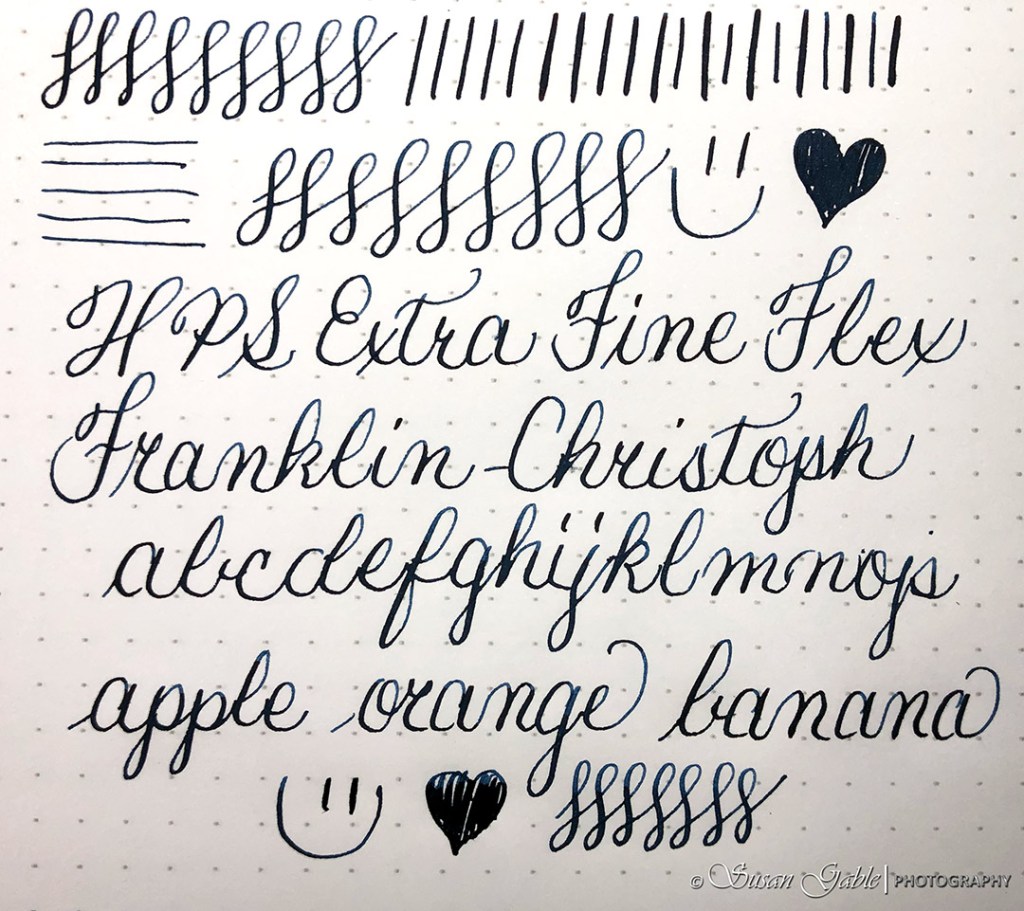 HPS Extra Fine Flex
Franklin-Christoph
abcdefghijklmnop
apple orange banana
© Susan Gable | PHOTOGRAPHY